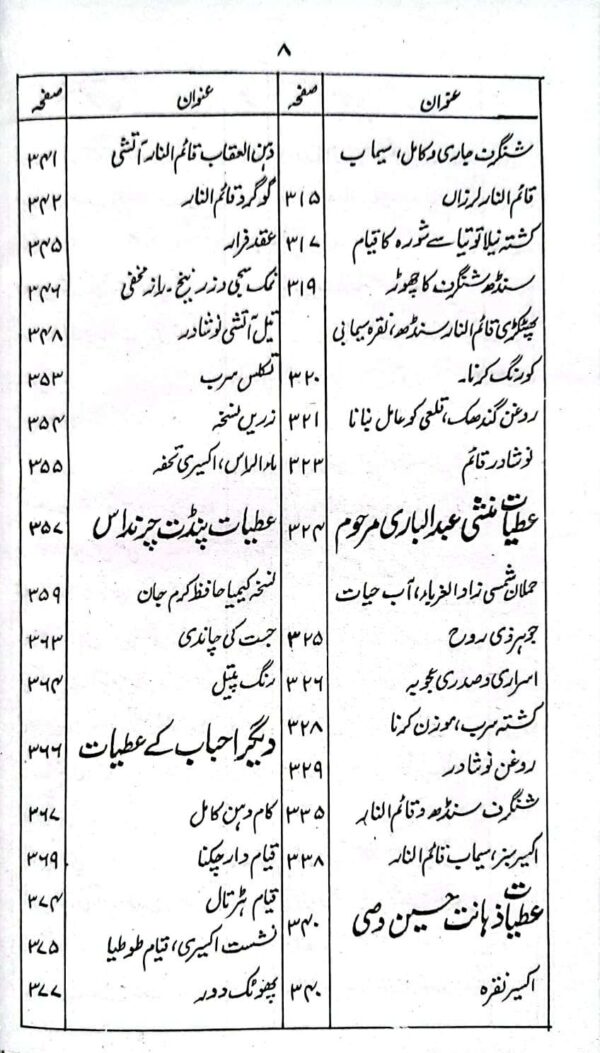 ۸
عنوان صفحہ
شنگرف جاری و کامل، سیماب
قائم النار لرزاں ۳۱۵
کشتہ نیلا توتیا سے شورہ کا قیام ۳۱۷
سنڈھ شنگرف کا چھوڑ ۳۱۹
پھٹکڑی قائم النار سنڈھ، نقرہ سیمابی
کو رنگ کرنا۔ ۳۲۰
روغن گندھک، قلعی کو عامل بنانا ۳۲۱
نوشادر قائم ۳۲۳
عطیات منشی عبدالباری مرحوم ۳۲۴
حملان شمسی زاد الغرباء، آب حیات
جوہر ذی روح ۳۲۵
اسراری و صدری مجوبہ ۳۲۶
کشتہ سرب، موزن کرنا ۳۲۸
روغن نوشادر ۳۲۹
شنگرف سنڈھ و قائم النار ۳۳۵
اکسیر سبز، سیماب قائم النار ۳۳۸
عطیات ذہانت حسین وصی ۳۴۰
اکسیر نقرہ ۳۴۰
عنوان صفحہ
دہن العقاب قائم النار آتشی ۳۴۱
گوگرد قائم النار ۳۴۲
عقد فرار ۳۴۵
نمک سجی و زرنیخ۔ راز مخفی ۳۴۶
تیل آتشی نوشادر ۳۴۸
تکلس سرب ۳۵۳
زریں نسخہ ۳۵۴
ماء الراس، اکسیری تحفہ ۳۵۵
عطیات پنڈت چرنداس ۳۵۷
نسخہ کیمیا حافظ کرم جان ۳۵۹
جست کی چاندی ۳۶۳
رنگ پیتل ۳۶۴
دیگر احباب کے عطیات ۳۶۶
کام دہن کامل ۳۶۷
قیام دار چکنا ۳۶۹
قیام ہڑتال ۳۷۴
نشست اکسیری، قیام طوطیا ۳۷۵
پھوٹک دور ۳۷۷